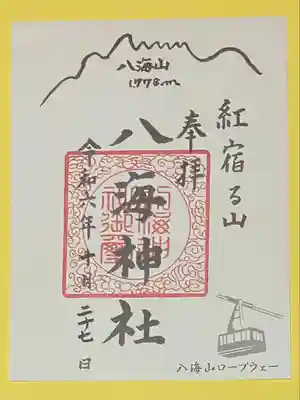 八海山
1778m
紅宿る山
奉拝
八海神社
令和六年十月二十七日
八海山ロープウェー